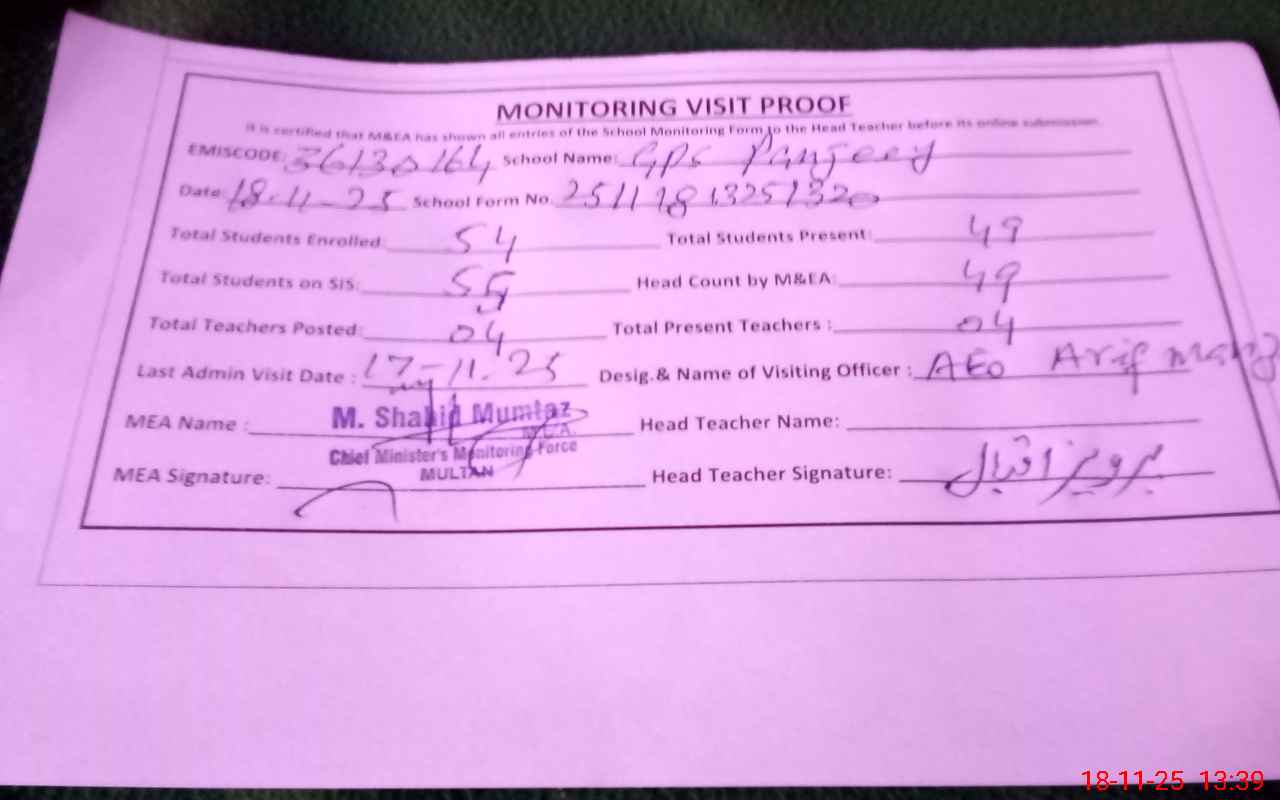 MONITORING VISIT PROOF
It is certified that M&EA has shown all entries of the School Monitoring Form to the Head Teacher before its online submission.
EMISCODE: 36130164 School Name: GPS
Date: 18-11-25 School Form No. 25111813251320
Total Students Enrolled: 54 Total Students Present: 49
Total Students on SIS: 55 Head Count by M&EA: 49
Total Teachers Posted: 04 Total Present Teachers : 04
Last Admin Visit Date : 17-11-25 Desig.& Name of Visiting Officer : AEO Arif
MEA Name : M. Shahid Mumtaz Head Teacher Name:
M.E.A.
Chief Minister's Monitoring Force
MULTAN
MEA Signature: Head Teacher Signature: پرویز اقبال
18-11-25 13:39